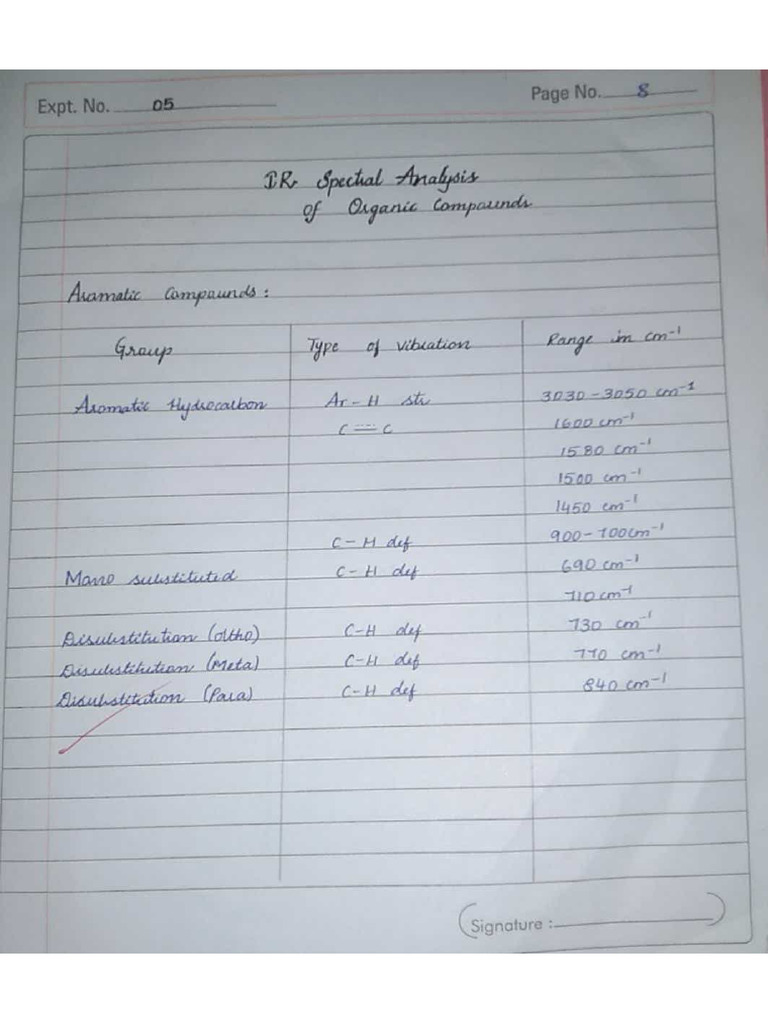 Expt. No. 05 Page No. 8
IR Spectral Analysis
of Organic Compounds
Aromatic Compounds :
Group Type of vibration Range in cm⁻¹
Aromatic Hydrocarbon Ar-H str 3030-3050 cm⁻¹
C=C 1600 cm⁻¹
1580 cm⁻¹
1500 cm⁻¹
1450 cm⁻¹
C-H def 900-700cm⁻¹
Mono substituted C-H def 690 cm⁻¹
710 cm⁻¹
Disubstitution (Ortho) C-H def 730 cm⁻¹
Disubstitution (Meta) C-H def 770 cm⁻¹
Disubstitution (Para) C-H def 840 cm⁻¹
Signature :